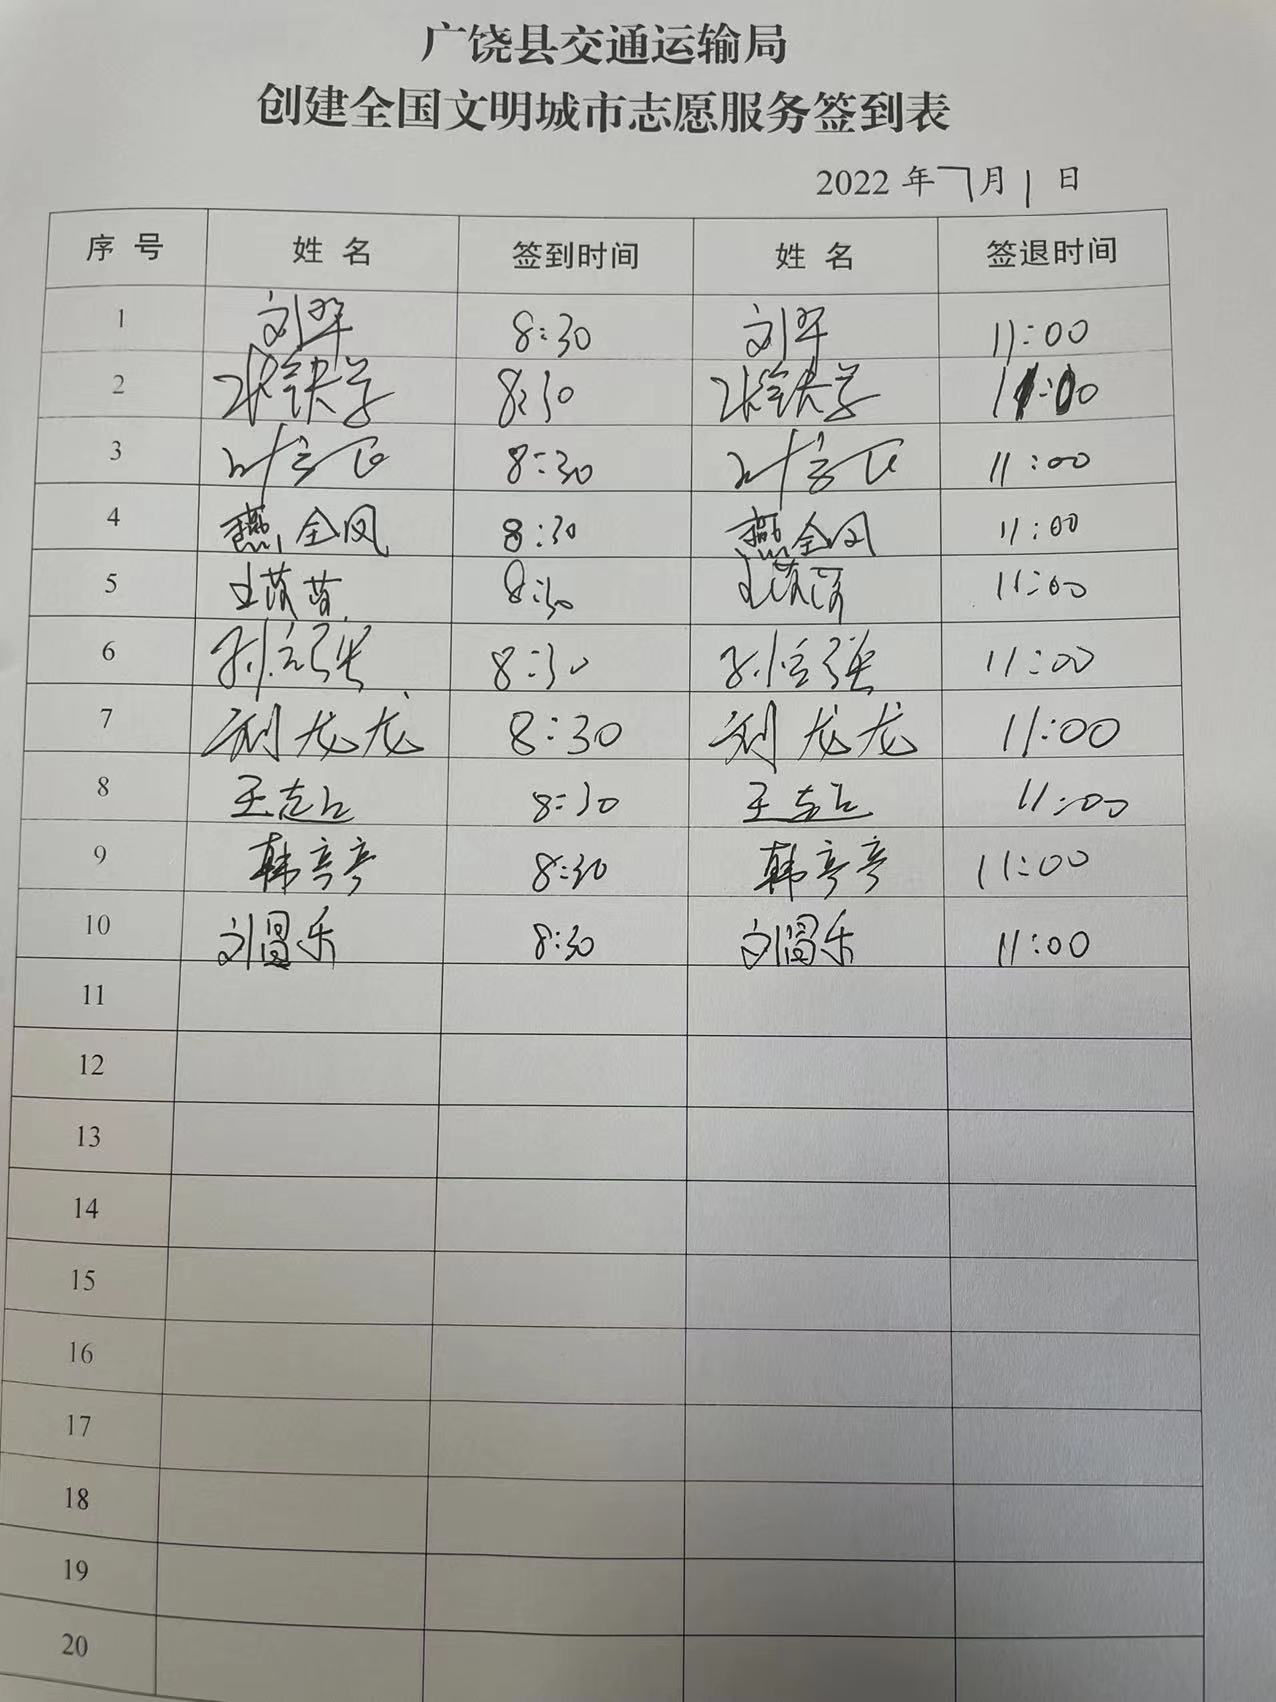 广饶县交通运输局
创建全国文明城市志愿服务签到表
2022 年 7月 1 日
序 号 姓 名 签到时间 姓 名 签退时间
1 刘军 8:30 刘军 11:00
2 8:30 11:00
3 8:30 11:00
4 燕全凤 8:30 燕全凤 11:00
5 8:30 11:00
6 8:30 11:00
7 刘龙龙 8:30 刘龙龙 11:00
8 8:30 11:00
9 韩亭亭 8:30 韩亭亭 11:00
10 8:30 11:00
11
12
13
14
15
16
17
18
19
20